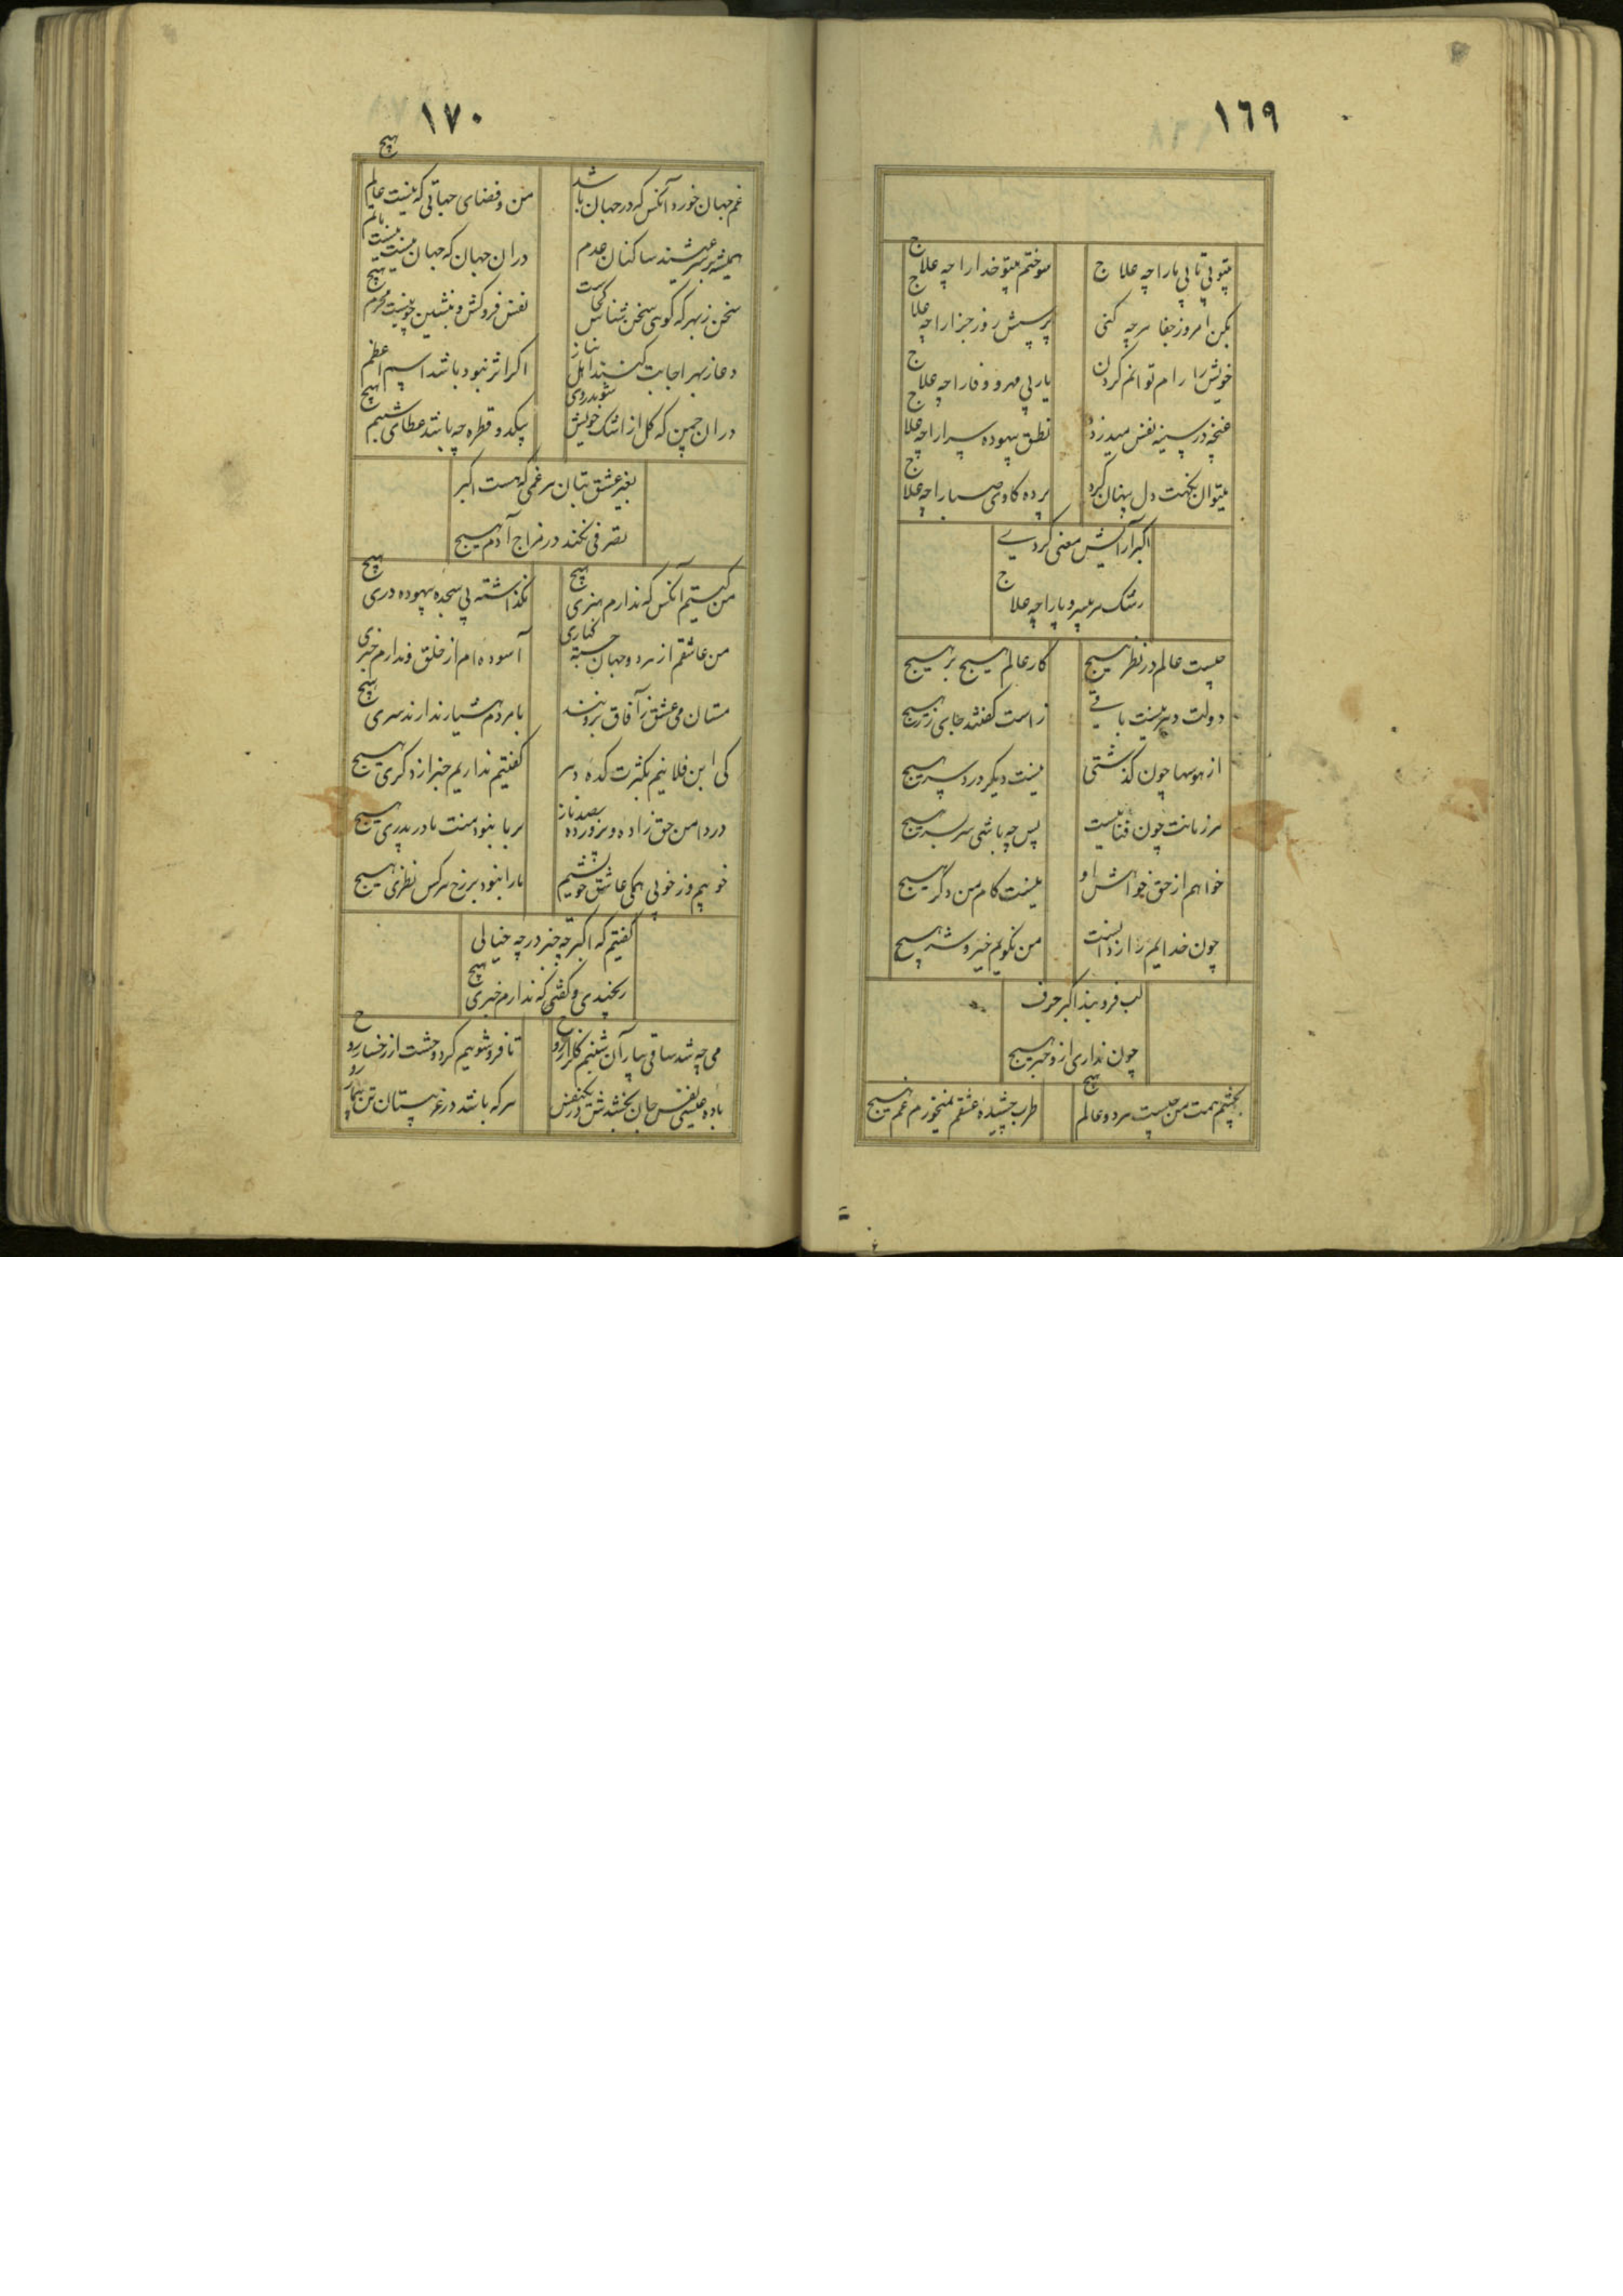 ١٦٩
بیتو بی تابی ما را چه علاج
سوختم بیتو خدا را چه علاج
بکن امروز جفا هرچه کنی
پرسش روز جزا را چه علاج
خویش را رام توانم کردن
یار بی مهر و وفا را چه علاج
غنچه در سینه نفس میدزدد
نطق بیهوده سرا را چه علاج
میتوان نکهت دل پنهان کرد
پرده کاوی صبا را چه علاج
اکبر آرایش معنی کردی
رشک هر بی سر و پا را چه علاج
چیست عالم در نظر هیچ
کار عالم هیچ بر هیچ
دولت دهر نیست باقی
راست گفتند جای زر هیچ
از هوسها چون گذشتی
نیست دیگر درد سر هیچ
هر زمانت چون فنائیست
پس چه باشی سر بسر هیچ
خواهم از حق خواهش او
نیست کام من دگر هیچ
چون خدایم راز دانست
من نگویم خیر و شر هیچ
لب فروبند اکبر حرف
چون نداری زو خبر هیچ
بچشم همت من چیست هر دو عالم هیچ
طرب چشیدهٔ عشقم نمیخورم غم هیچ
١٧٠
غم جهان خورد آنکس که در جهان باشد
من و فضای جهانی که نیست عالم هیچ
همیشه بر سر عیشند ساکنان عدم
در ان جهان که جهان نیست نیست ماتم هیچ
سخن ز بهر که گوی سخن شناس کجاست
نفس فروکش و بنشین چو نیست محرم هیچ
دعا ز بهر اجابت کنند اهل نیاز
اگر اثر نبود باشد اسم اعظم هیچ
در ان چمن که گل از اشک خویش شوید روی
یکدو قطره چه باشد عطای شبنم هیچ
بغیر عشق بتان هر غمی که هست اکبر
تصرفی نکند در مزاج آدم هیچ
من کیستم آنکس که ندارم هنری هیچ
نگذاشته بی سجده بیهوده دری هیچ
من عاشقم از هر دو جهان جسته کناری
آسوده ام از خلق و ندارم خبری هیچ
مستان می عشق ز آفاق برونند
با مردم هشیار ندارند سری هیچ
کی ابن فلانیم بکثرت کده دهر
گفتیم نداریم خبر از دگری هیچ
در دامن حق زاده و پرورده بصد ناز
بر ما نبود منت مادر پدری هیچ
خوبیم و ز خوبی همگی عاشق خویشیم
ما را نبود بر رخ هر کس نظری هیچ
گفتیم که اکبر تو چه چیز در چه خیالی
رنجیدی و گفتی که ندارم خبری هیچ
می چه شد ساقی بیار آن شبنم گلزار روح
تا فروشویم گرد وحشت از رخسار روح
باده عیسی نفس جان بخشدش در یکنفس
هر که باشد در غمستان تن بیمار روح